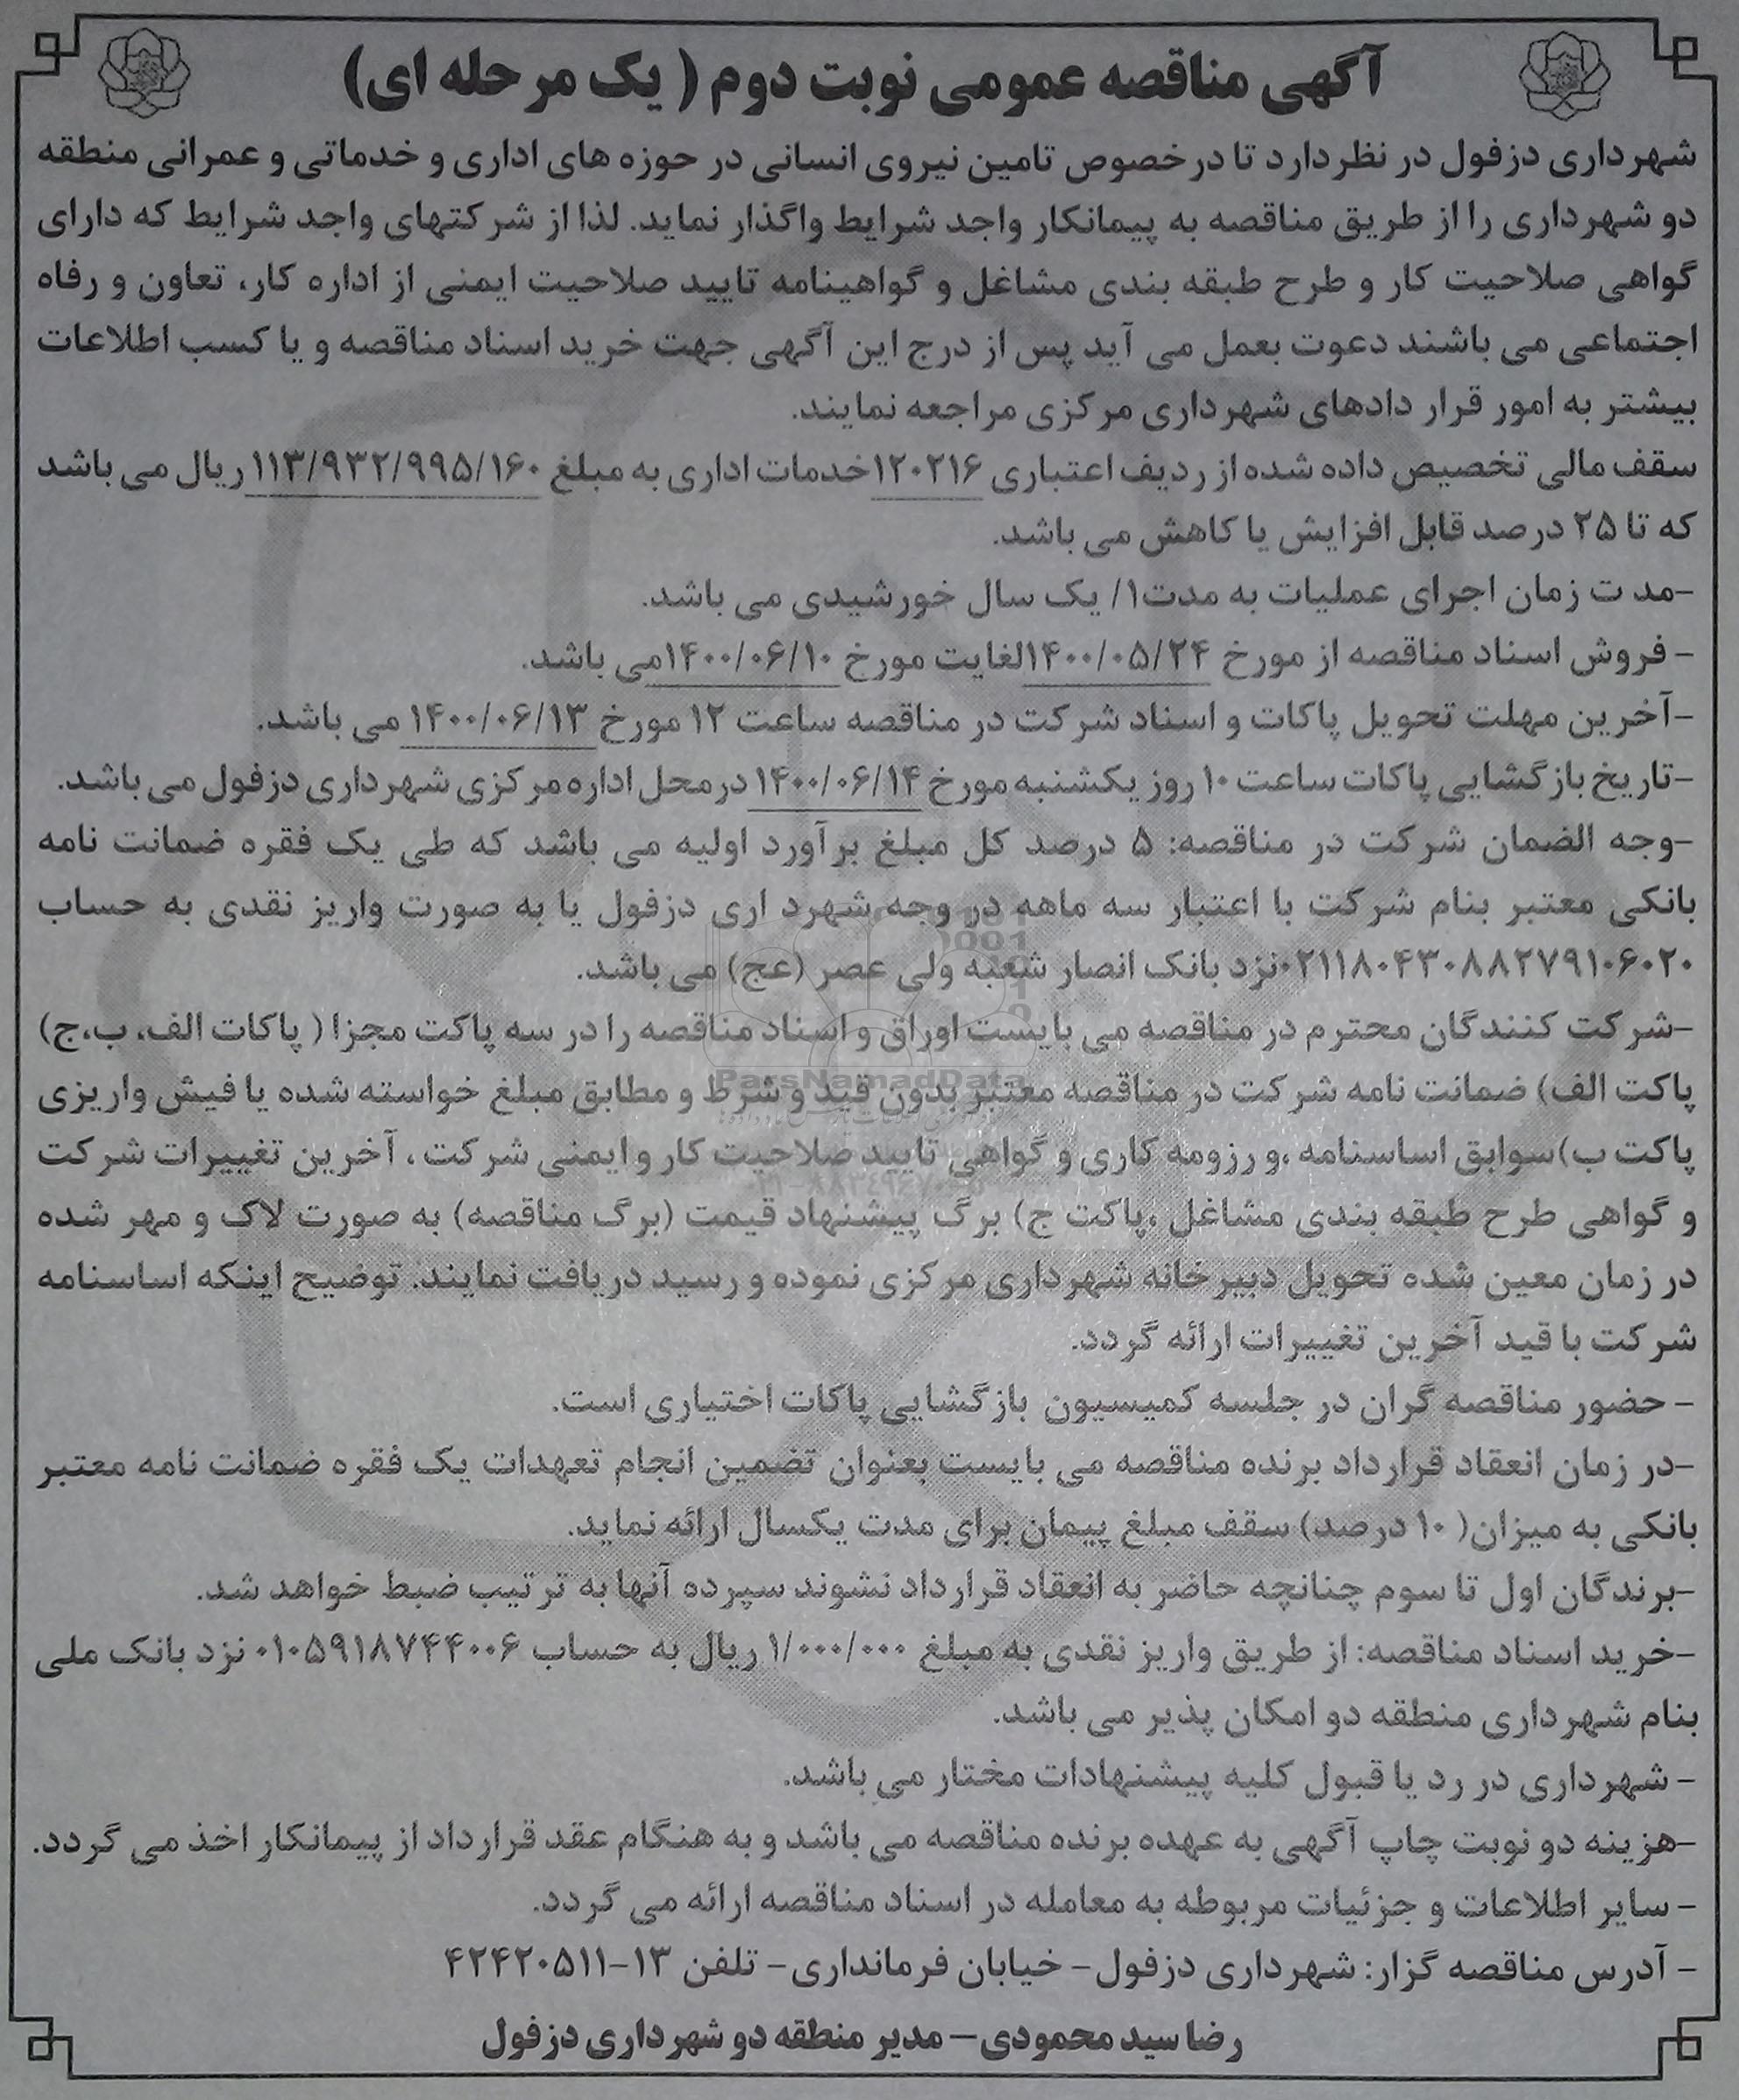 آگهی مناقصه عمومی نوبت دوم ( یک مرحله ای)
شهرداری دزفول در نظر دارد تا در خصوص تامین نیروی انسانی در حوزه های اداری و خدماتی و عمرانی منطقه
دو شهرداری را از طریق مناقصه به پیمانکار واجد شرایط واگذار نماید. لذا از شرکتهای واجد شرایط که دارای
گواهی صلاحیت کار و طرح طبقه بندی مشاغل و گواهینامه تایید صلاحیت ایمنی از اداره کار، تعاون و رفاه
اجتماعی می باشند دعوت بعمل می آید پس از درج این آگهی جهت خرید اسناد مناقصه و یا کسب اطلاعات
بیشتر به امور قرار دادهای شهرداری مرکزی مراجعه نمایند.
سقف مالی تخصیص داده شده از ردیف اعتباری ۱۲۰۲۱۶ خدمات اداری به مبلغ ۱۱۳/۹۳۲/۹۹۵/۱۶۰ ریال می باشد
که تا ۲۵ درصد قابل افزایش یا کاهش می باشد.
-مد ت زمان اجرای عملیات به مدت۱/ یک سال خورشیدی می باشد.
- فروش اسناد مناقصه از مورخ ۱۴۰۰/۰۵/۲۴لغایت مورخ ۱۴۰۰/۰۶/۱۰می باشد.
-آخرین مهلت تحویل پاکات و اسناد شرکت در مناقصه ساعت ۱۲ مورخ ۱۴۰۰/۰۶/۱۳ می باشد.
-تاریخ بازگشایی پاکات ساعت ۱۰ روز یکشنبه مورخ ۱۴۰۰/۰۶/۱۴ در محل اداره مرکزی شهرداری دزفول می باشد.
-وجه الضمان شرکت در مناقصه: ۵ درصد کل مبلغ برآورد اولیه می باشد که طی یک فقره ضمانت نامه
بانکی معتبر بنام شرکت با اعتبار سه ماهه در وجه شهرد اری دزفول یا به صورت واریز نقدی به حساب
۰۲۱۱۸۰۴۳۰۸۸۲۷۹۱۰۶۰۲۰نزد بانک انصار شعبه ولی عصر (عج) می باشد.
-شرکت کنندگان محترم در مناقصه می بایست اوراق و اسناد مناقصه را در سه پاکت مجزا ( پاکات الف، ب،ج)
پاکت الف) ضمانت نامه شرکت در مناقصه معتبر بدون قید و شرط و مطابق مبلغ خواسته شده یا فیش واریزی
پاکت ب)سوابق اساسنامه ،و رزومه کاری و گواهی تایید صلاحیت کار و ایمنی شرکت ، آخرین تغییرات شرکت
و گواهی طرح طبقه بندی مشاغل ،پاکت ج) برگ پیشنهاد قیمت (برگ مناقصه) به صورت لاک و مهر شده
در زمان معین شده تحویل دبیرخانه شهرداری مرکزی نموده و رسید دریافت نمایند. توضیح اینکه اساسنامه
شرکت با قید آخرین تغییرات ارائه گردد.
- حضور مناقصه گران در جلسه کمیسیون بازگشایی پاکات اختیاری است.
-در زمان انعقاد قرارداد برنده مناقصه می بایست بعنوان تضمین انجام تعهدات یک فقره ضمانت نامه معتبر
بانکی به میزان( ۱۰ درصد) سقف مبلغ پیمان برای مدت یکسال ارائه نماید.
-برندگان اول تا سوم چنانچه حاضر به انعقاد قرارداد نشوند سپرده آنها به ترتیب ضبط خواهد شد.
-خرید اسناد مناقصه: از طریق واریز نقدی به مبلغ ۱/۰۰۰/۰۰۰ ریال به حساب ۰۱۰۵۹۱۸۷۴۴۰۰۶ نزد بانک ملی
بنام شهرداری منطقه دو امکان پذیر می باشد.
- شهرداری در رد یا قبول کلیه پیشنهادات مختار می باشد.
-هزینه دو نوبت چاپ آگهی به عهده برنده مناقصه می باشد و به هنگام عقد قرارداد از پیمانکار اخذ می گردد.
- سایر اطلاعات و جزئیات مربوطه به معامله در اسناد مناقصه ارائه می گردد.
- آدرس مناقصه گزار: شهرداری دزفول- خیابان فرمانداری- تلفن ۱۳-۴۲۴۲۰۵۱۱
رضا سید محمودی- مدیر منطقه دو شهرداری دزفول
ParsNamadData